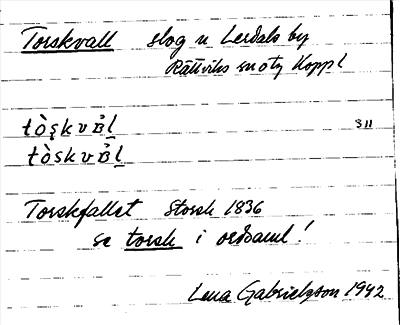 Torskvall slog n Lerdals by
Rättviks sn otg Koppl
tòskvàl 311
tòskvàl
Torskfallet Storsk 1836
se torsk i ordsaml!
Lena Gabrielsson 1942